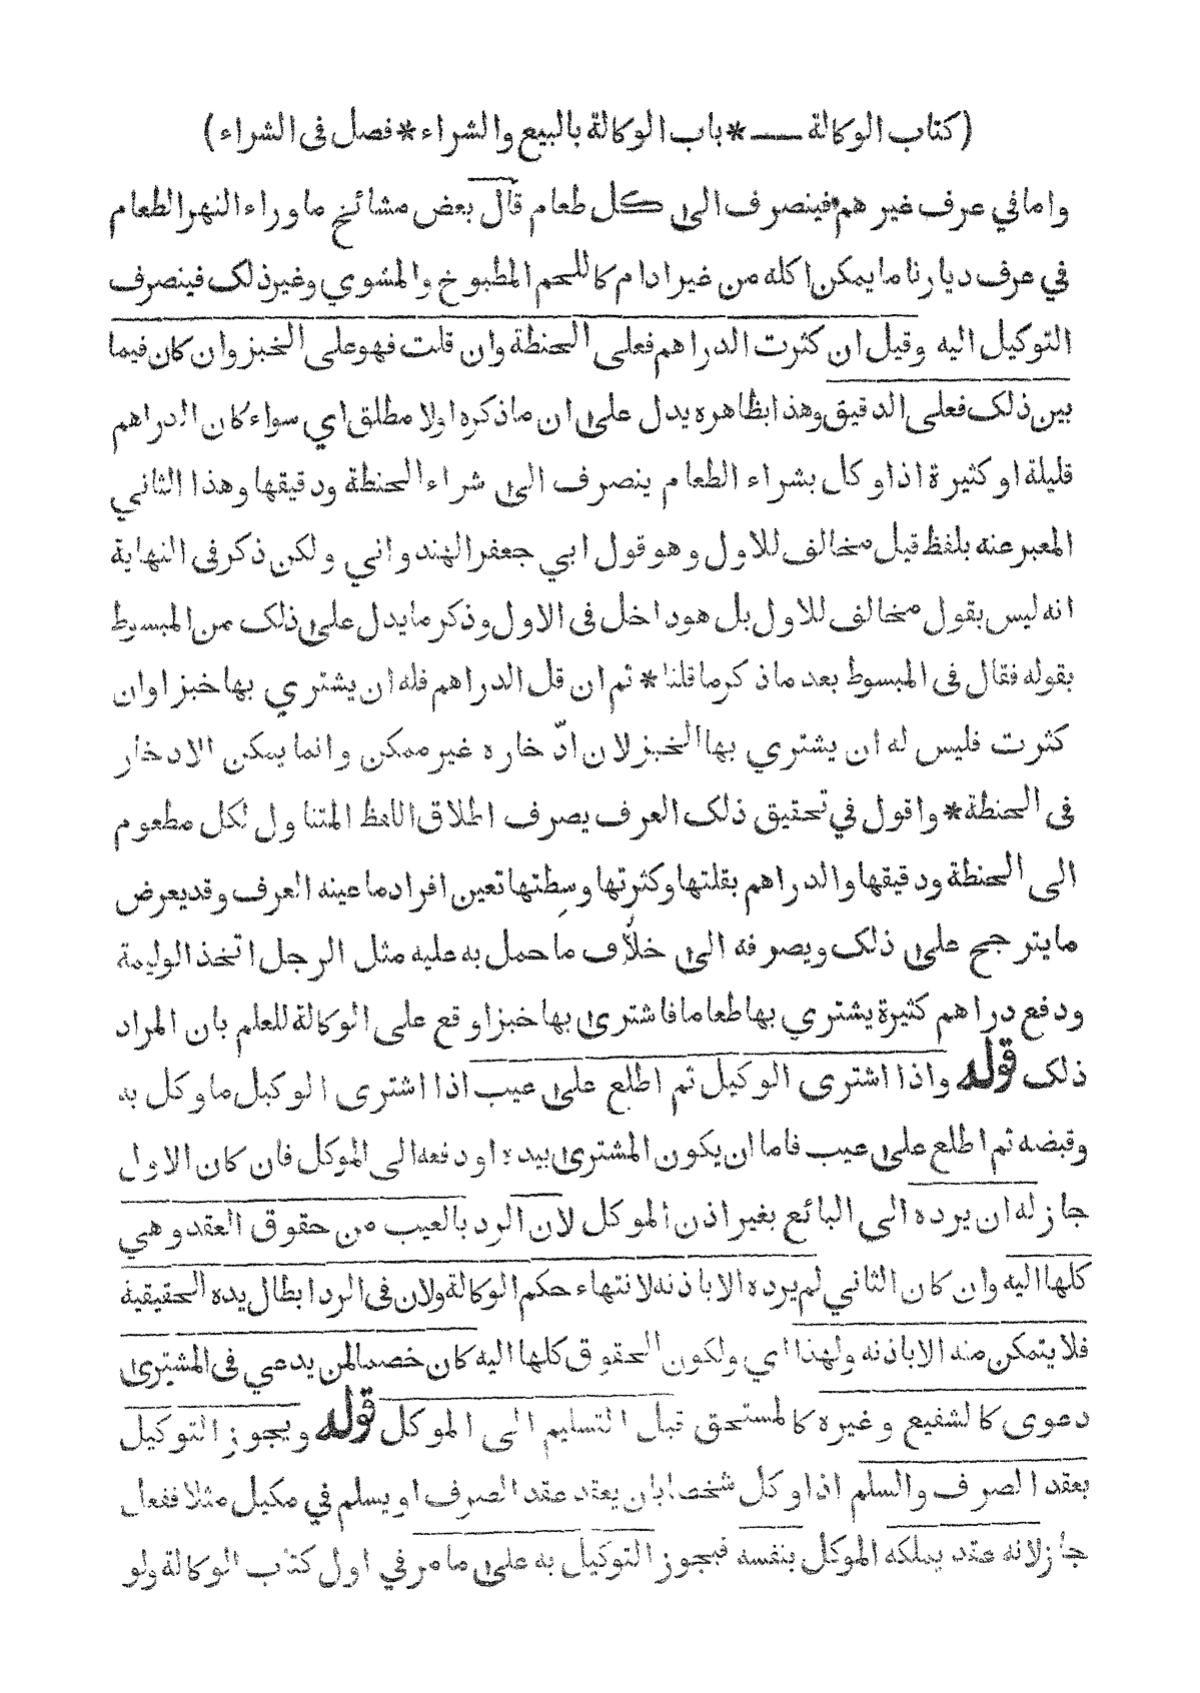 (كتاب الوكالة ـــ * باب الوكالة بالبيع والشراء * فصل فى الشراء)
واما في عرف غير هم فينصرف الى كل طعام قال بعض مشائخ ما وراء النهر الطعام
في عرف ديارنا ما يمكن اكله من غير ادام كاللحم المطبوخ والمشوي وغير ذلك فينصرف
التوكيل اليه وقيل ان كثرت الدراهم فعلى الحنطة وان قلت فهو على الخبز وان كان فيما
بين ذلك فعلى الدقيق وهذا بظاهره يدل على ان ما ذكره اولا مطلق اي سواء كان الدراهم
قليلة او كثيرة اذا وكل بشراء الطعام ينصرف الى شراء الحنطة ودقيقها وهذا الثاني
المعبر عنه بلفظ قيل مخالف للاول وهو قول ابي جعفر الهندواني ولكن ذكر فى النهاية
انه ليس بقول مخالف للاول بل هو داخل فى الاول وذكر ما يدل على ذلك من المبسوط
بقوله فقال فى المبسوط بعد ما ذكر ما قلنا * ثم ان قل الدراهم فله ان يشتري بها خبزا وان
كثرت فليس له ان يشتري بها الخبز لان ادّخاره غير ممكن وانما يمكن الادخار
فى الحنطة * واقول في تحقيق ذلك العرف يصرف اطلاق اللفظ المتناول لكل مطعوم
الى الحنطة ودقيقها والدراهم بقلتها وكثرتها وسطتها تعين افراد ما عينه العرف وقد يعرض
ما يترجح على ذلك ويصرفه الى خلاف ما حمل به عليه مثل الرجل اتخذ الوليمة
ودفع دراهم كثيرة يشتري بها طعاما فاشترى بها خبزا وقع على الوكالة للعلم بان المراد
ذلك قوله واذا اشترى الوكيل ثم اطلع على عيب اذا اشترى الوكيل ما وكل به
وقبضه ثم اطلع على عيب فاما ان يكون المشترى بيده او دفعه الى الموكل فان كان الاول
جاز له ان يرده الى البائع بغير اذن الموكل لان الرد بالعيب من حقوق العقد وهي
كلها اليه وان كان الثاني لم يرده الا باذنه لانتهاء حكم الوكالة ولان فى الرد ابطال يده الحقيقية
فلا يتمكن منه الا باذنه ولهذا اي ولكون الحقوق كلها اليه كان خصما لمن يدعي فى المشترى
دعوى كالشفيع وغيره كالمستحق قبل التسليم الى الموكل قوله ويجوز التوكيل
بعقد الصرف والسلم اذا وكل شخصا بان يعقد عقد الصرف او يسلم في مكيل مثلا ففعل
جاز لانه عقد يملكه الموكل بنفسه فيجوز التوكيل به على ما مر في اول كتاب الوكالة ولو